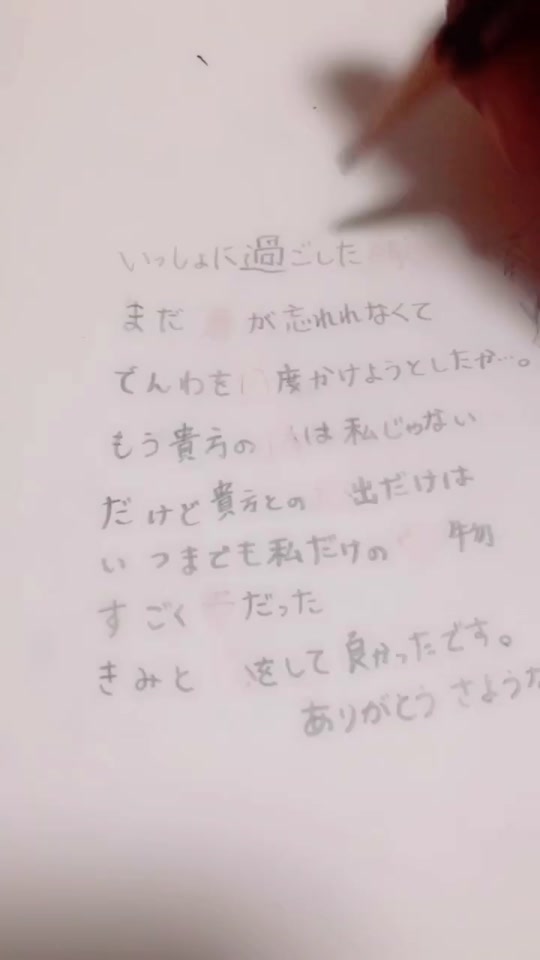 いっしょに過ごした
まだ が忘れれなくて
でんわを 度かけようとしたか…。
もう貴方の は私じゃない
だけど貴方との 出だけは
いつまでも私だけの 物
すごく だった
きみと をして良かったです。
ありがとう さような